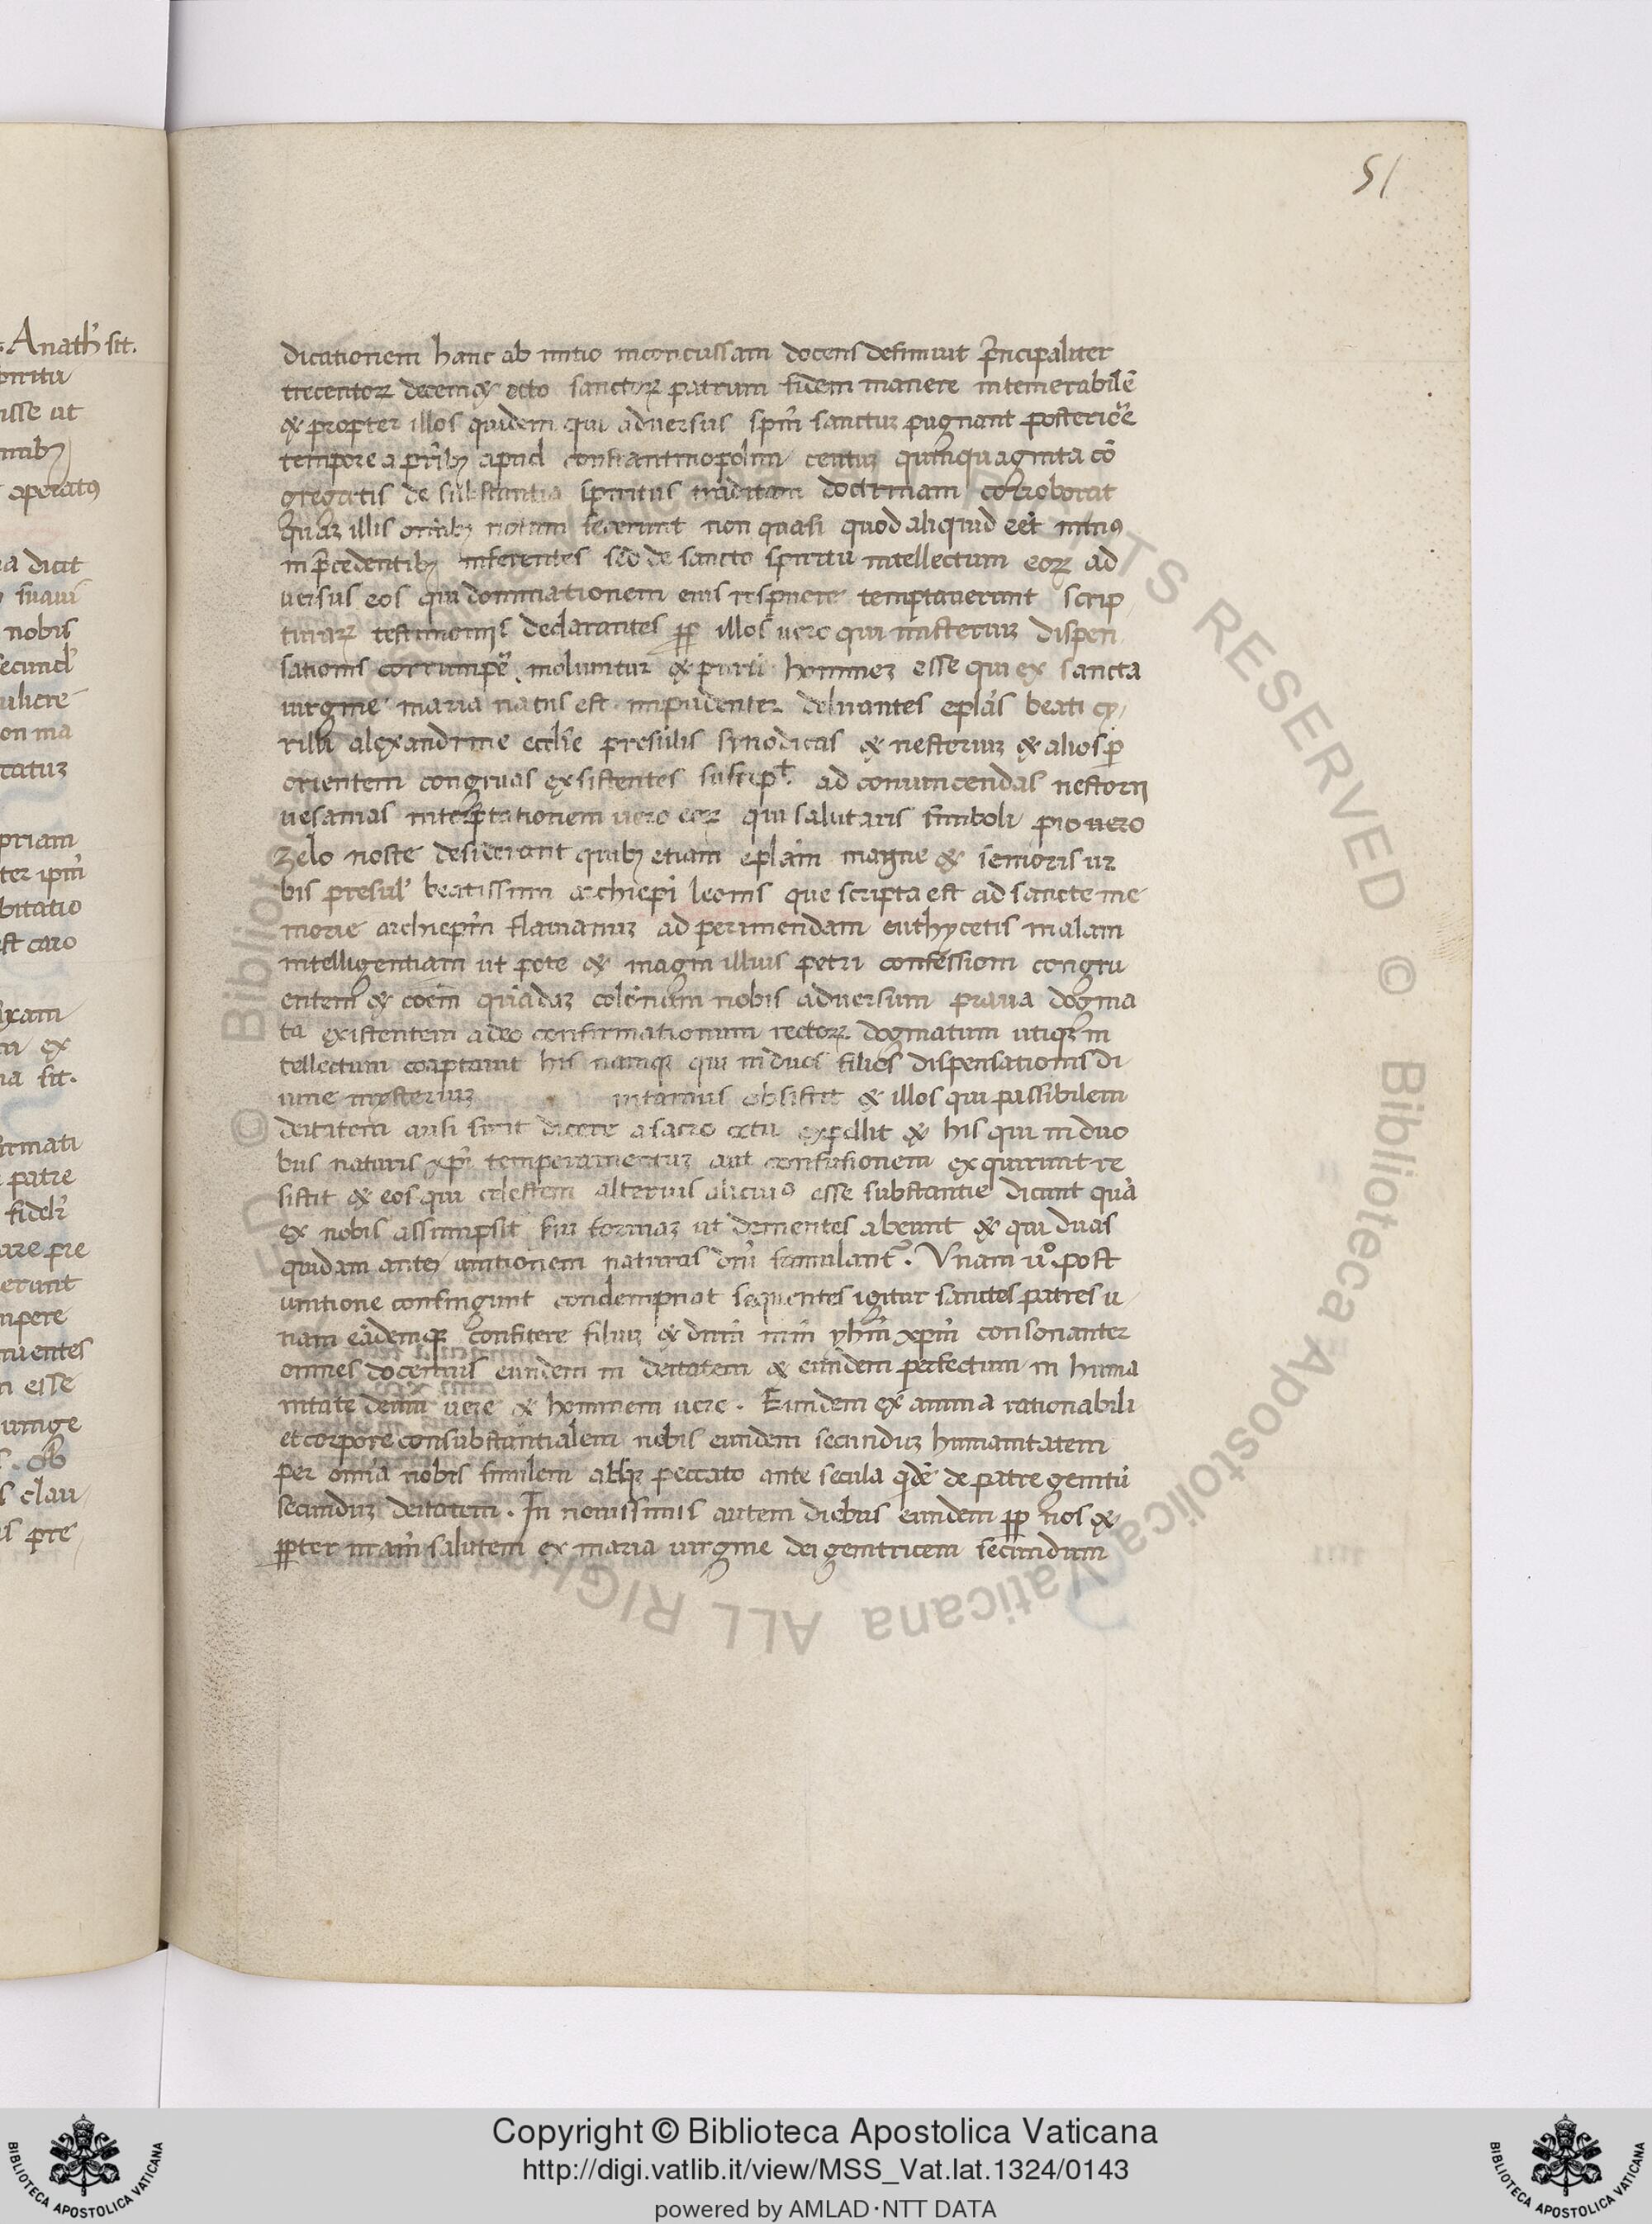 51
dicationem hanc ab initio inconcussam docens definiuit p̄ncipaliter
trecentoꝝ decem & octo sanctoꝝ patrum fidem manere intemerabilē
& propter illos quidem qui aduersus spm̄ sanctuꝫ pugnant posteriōe
tempore a pr̄ibꝫ apud constantinopolim centuꝫ quinquaginta cō
gregatis de substantia spiritus traditam doctrinam corroborat
quaꝫ illis om̄ibꝫ notam fecerunt non quasi quod aliquid eēt minꝰ
in p̄cedentibꝫ inferentes sed de sancto spiritu intellectum eoꝝ ad
uersus eos qui dominationem eius respuere temptauerunt scrip
turaꝝ testimonijs declarantes ꝓp illos uero qui misteriuꝫ dispen
sationis corrumpē moliuntur & puri homineꝫ esse qui ex sancta
uirgine maria natus est impudenter delirantes ep̄las beati cy
rilli alexandrine eccl̄ie presulis synodicas & nestoriuꝫ & alios ꝑ
orientem congruas existentes suscip̄t ad conuincendas nestorij
uesanias interp̄tationem uero eoꝝ qui salutaris simboli pio uero
zelo nosse desiderant quibꝫ etiam ep̄lam magne & senioris ur
bis presul̓ beatissimi archiep̄i leonis que scripta est ad sancte me
morie archiep̄m flauianuꝫ ad perimendam euthycetis malam
intelligentiam ut pote & magni illius petri confessioni congru
entem & coēm quādaꝫ colūnam nobis aduersum praua dogma
ta existentem adeo confirmationum rectoꝝ dogmatum utiqꝫ in
tellectum coaptauit his namqꝫ qui in duos filios dispensationis di
uine mysteriuꝫ obsistit & illos qui passibilem
deitatem ausi sunt dicere a sacro cetu expellit & his qui in duo
bus naturis xp̄i temperamentuꝫ aut confusionem exquirunt re
sistit & eos qui celestem alterius alicuiꝰ esse substantie dicunt quā
ex nobis assumpsit formaꝫ ut dementes abeunt & qui duas
quidam ante unitionem naturas dn̄i simulant̄. Vnam ūo post
unitione confingunt condempnat sequentes igitur sanctos patres u
nam eādemqꝫ confitere filiuꝫ & dnm̄ nr̄m yhm̄ xpm̄ consonanter
omnes docemus eundem in deitatem & eundem perfectum in huma
nitate deum uere & hominem uere. Eundem ex anima rationabili
et corpore consubstantialem nobis eundem secunduꝫ humanitatem
per omīa nobis similem absqꝫ peccato ante secula qdē de patre genitū
secunduꝫ deitatem. In nouissimis autem diebus eundem ꝓp nos &
ꝓpter nr̄am salutem ex maria uirgine dei genitricem secundum
Copyright © Biblioteca Apostolica Vaticana
http://digi.vatlib.it/view/MSS_Vat.lat.1324/0143
powered by AMLAD·NTT DATA